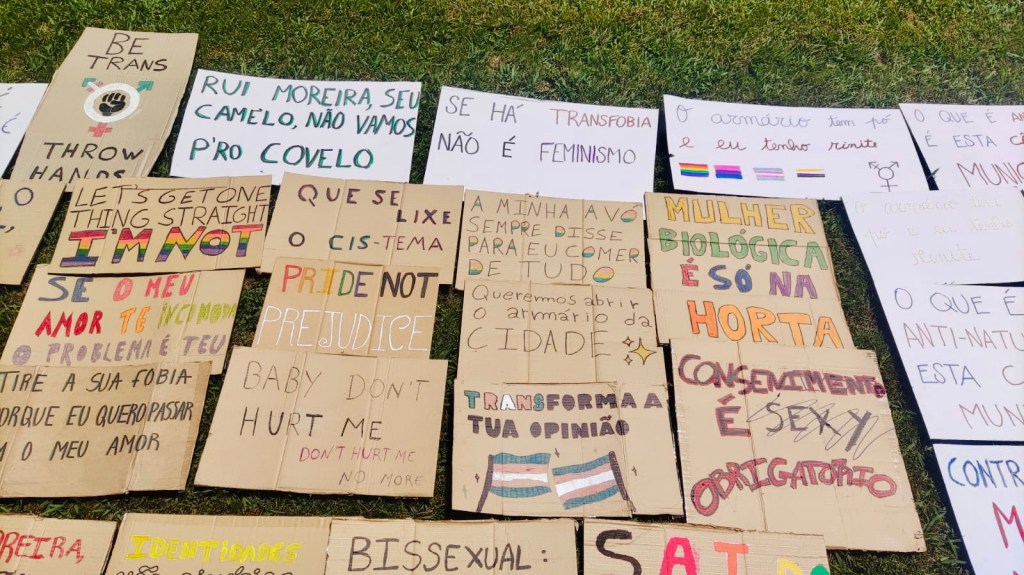 BE
TRANS
THROW
HANDS
RUI MOREIRA, SEU
CAMELO, NÃO VAMOS
P'RO COVELO
SE HÁ TRANSFOBIA
NÃO É FEMINISMO
O armário tem pó
e eu tenho rinite
O QUE É
ESTA
LET'S GET ONE
THING STRAIGHT
I'M NOT
QUE SE
LIXE
O CIS-TEMA
A MINHA AVÓ
SEMPRE DISSE
PARA EU COMER
DE TUDO
MULHER
BIOLÓGICA
É SÓ NA
HORTA
O armário tem
pó e eu tenho
rinite
SE O MEU
AMOR TE INCOMODA
O PROBLEMA É TEU
PRIDE NOT
PREJUDICE
Queremos abrir
o armário da
CIDADE
O QUE É
ANTI-NATU
ESTA
MUNI
TIRE A SUA FOBIA
PORQUE EU QUERO PASSAR
O MEU AMOR
BABY DON'T
HURT ME
DON'T HURT ME
NO MORE
TRANSFORMA A
TUA OPINIÃO
CONSENIMENTO
É SEXY
OBRIGATÓRIO
CONTR
M
OREIRA,
IDENTIDADES
BISSEXUAL: